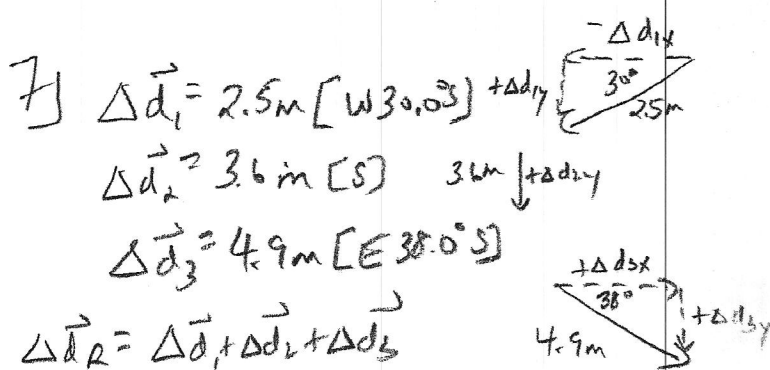 -Δd₁ₓ
7] Δd⃗₁ = 2.5m [W30.0°S] +Δd₁y 30° 2.5m
Δd⃗₂ = 3.6 m [S] 3.6m +Δd₂y
Δd⃗₃ = 4.9m [E 38.0° S] +Δd₃ₓ
38° +Δd₃y
Δd⃗R = Δd⃗₁ + Δd⃗₂ + Δd⃗₃ 4.9m